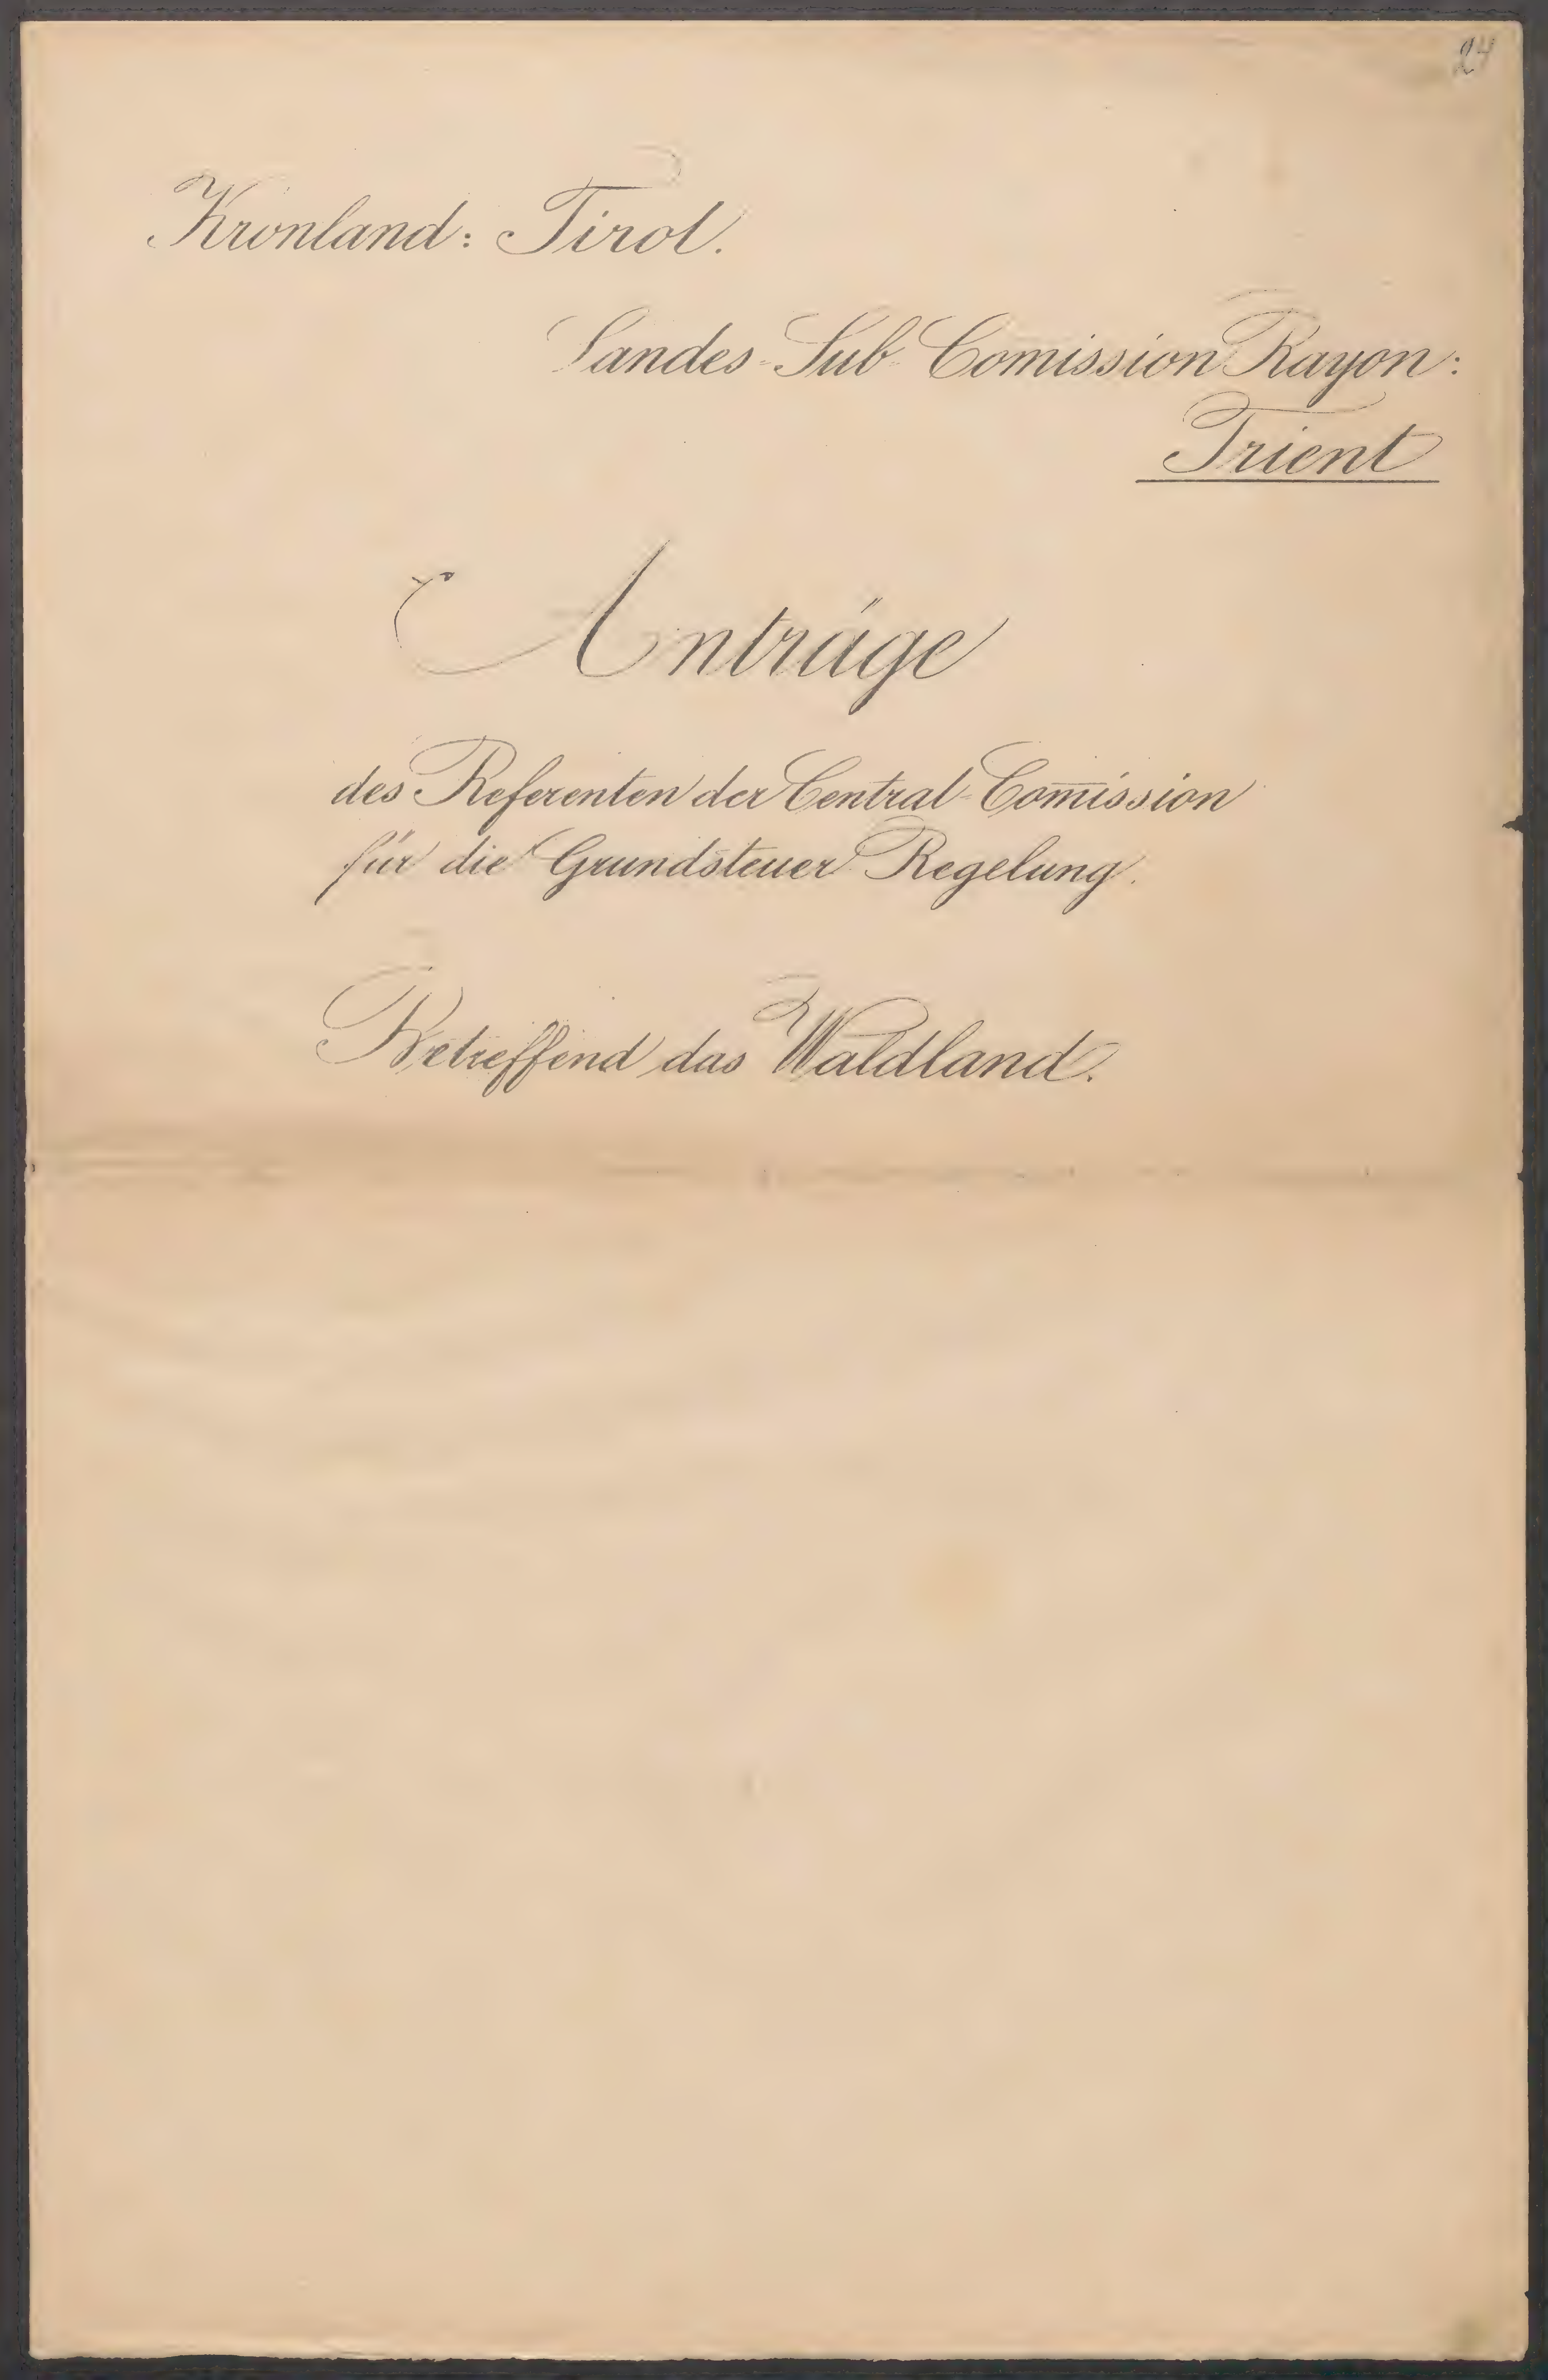 24
Kronland: Tirol.
Landes-Sub-Comission Rayon:
Trient
Anträge
des Referenten der Central-Com̅ission
für die Grundsteuer Regelung.
Betreffend das Waldland.